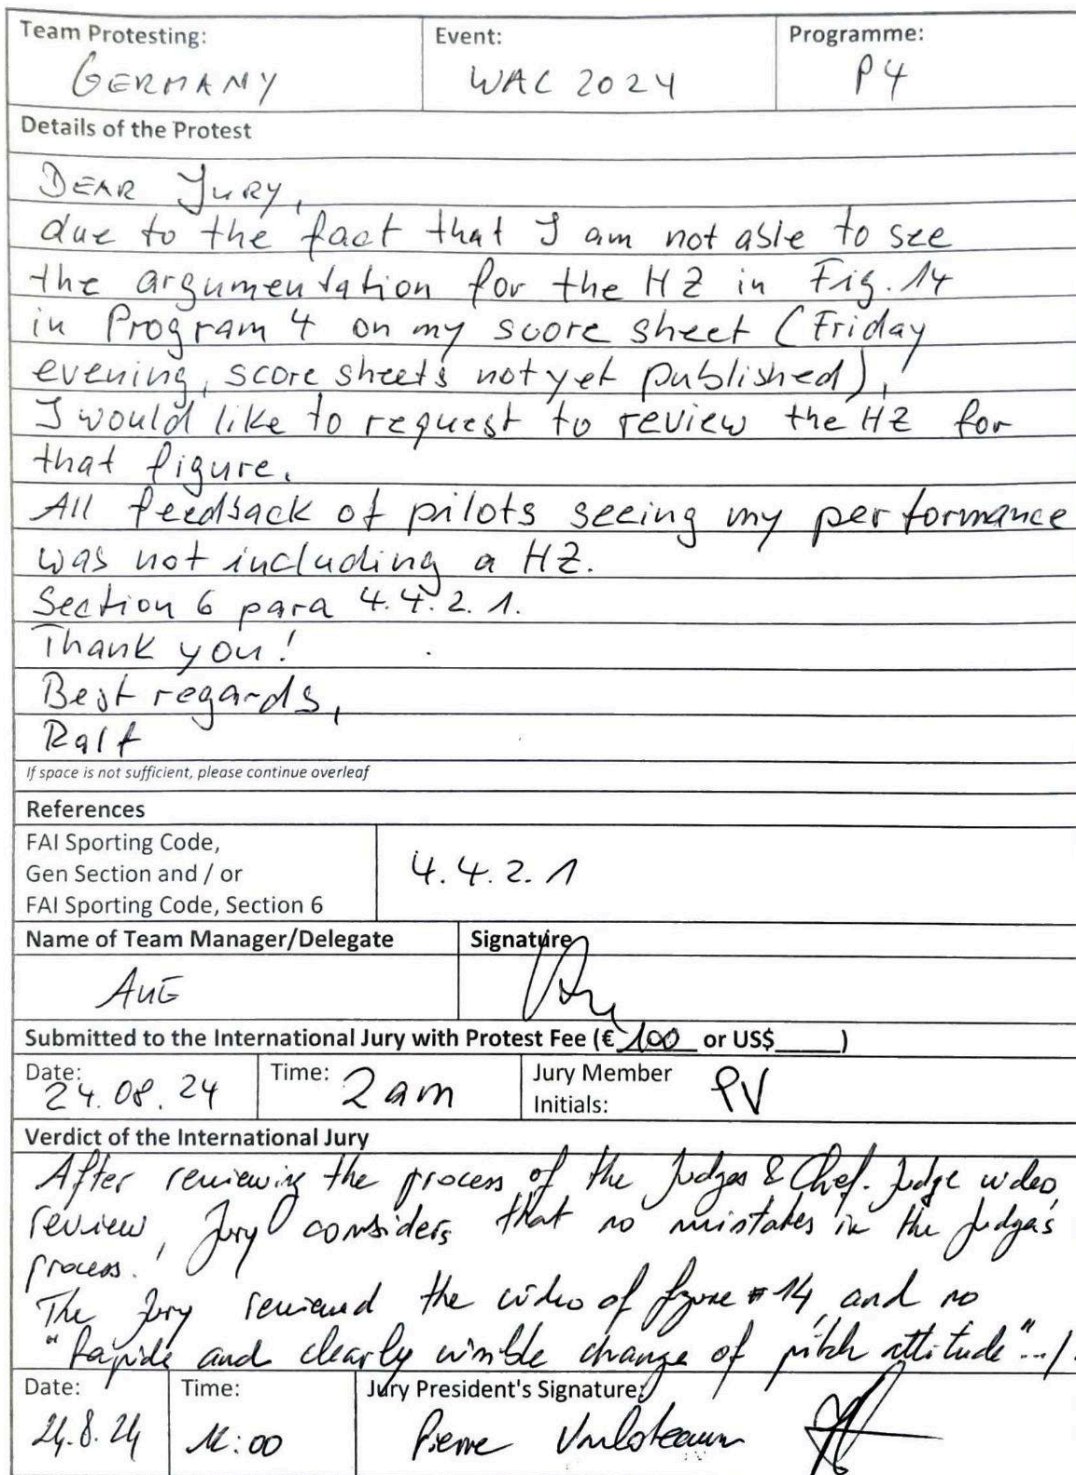 Team Protesting: Event: Programme:
GERMANY WAC 2024 P4
Details of the Protest
DEAR Jury,
due to the fact that I am not able to see
the argumentation for the HZ in Fig. 14
in Program 4 on my score sheet (Friday
evening, score sheets not yet published),
I would like to request to review the HZ for
that figure.
All feedback of pilots seeing my performance
was not including a HZ.
Section 6 para 4.4.2.1.
Thank you!
Best regards,
Ralf
If space is not sufficient, please continue overleaf
References
FAI Sporting Code,
Gen Section and / or
FAI Sporting Code, Section 6
4.4.2.1
Name of Team Manager/Delegate Signature
Submitted to the International Jury with Protest Fee (€ 100 or US$_____)
Date: Time: Jury Member
24.08.24 2 am Initials: PV
Verdict of the International Jury
After reviewing the process of the Judges & Chef. Judge video
review, Jury considers that no mistakes in the judges
process.
The Jury reviewed the video of figure #14, and no
"Rapide and clearly visible change of pitch attitude"../.
Date: Time: Jury President's Signature:
24.8.24 :00 Pierre